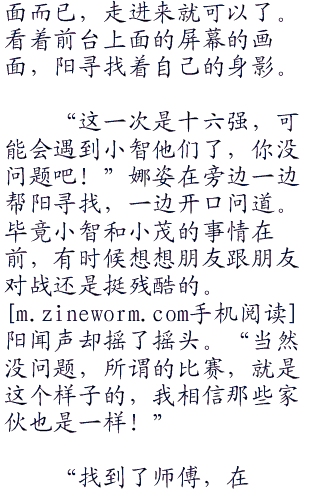 面而已，走进来就可以了。
看着前台上面的屏幕的画
面，阳寻找着自己的身影。
“这一次是十六强，可
能会遇到小智他们了，你没
问题吧！”娜姿在旁边一边
帮阳寻找，一边开口问道。
毕竟小智和小茂的事情在
前，有时候想想朋友跟朋友
对战还是挺残酷的。
[m.zineworm.com手机阅读]
阳闻声却摇了摇头。“当然
没问题，所谓的比赛，就是
这个样子的，我相信那些家
伙也是一样！”
“找到了师傅，在